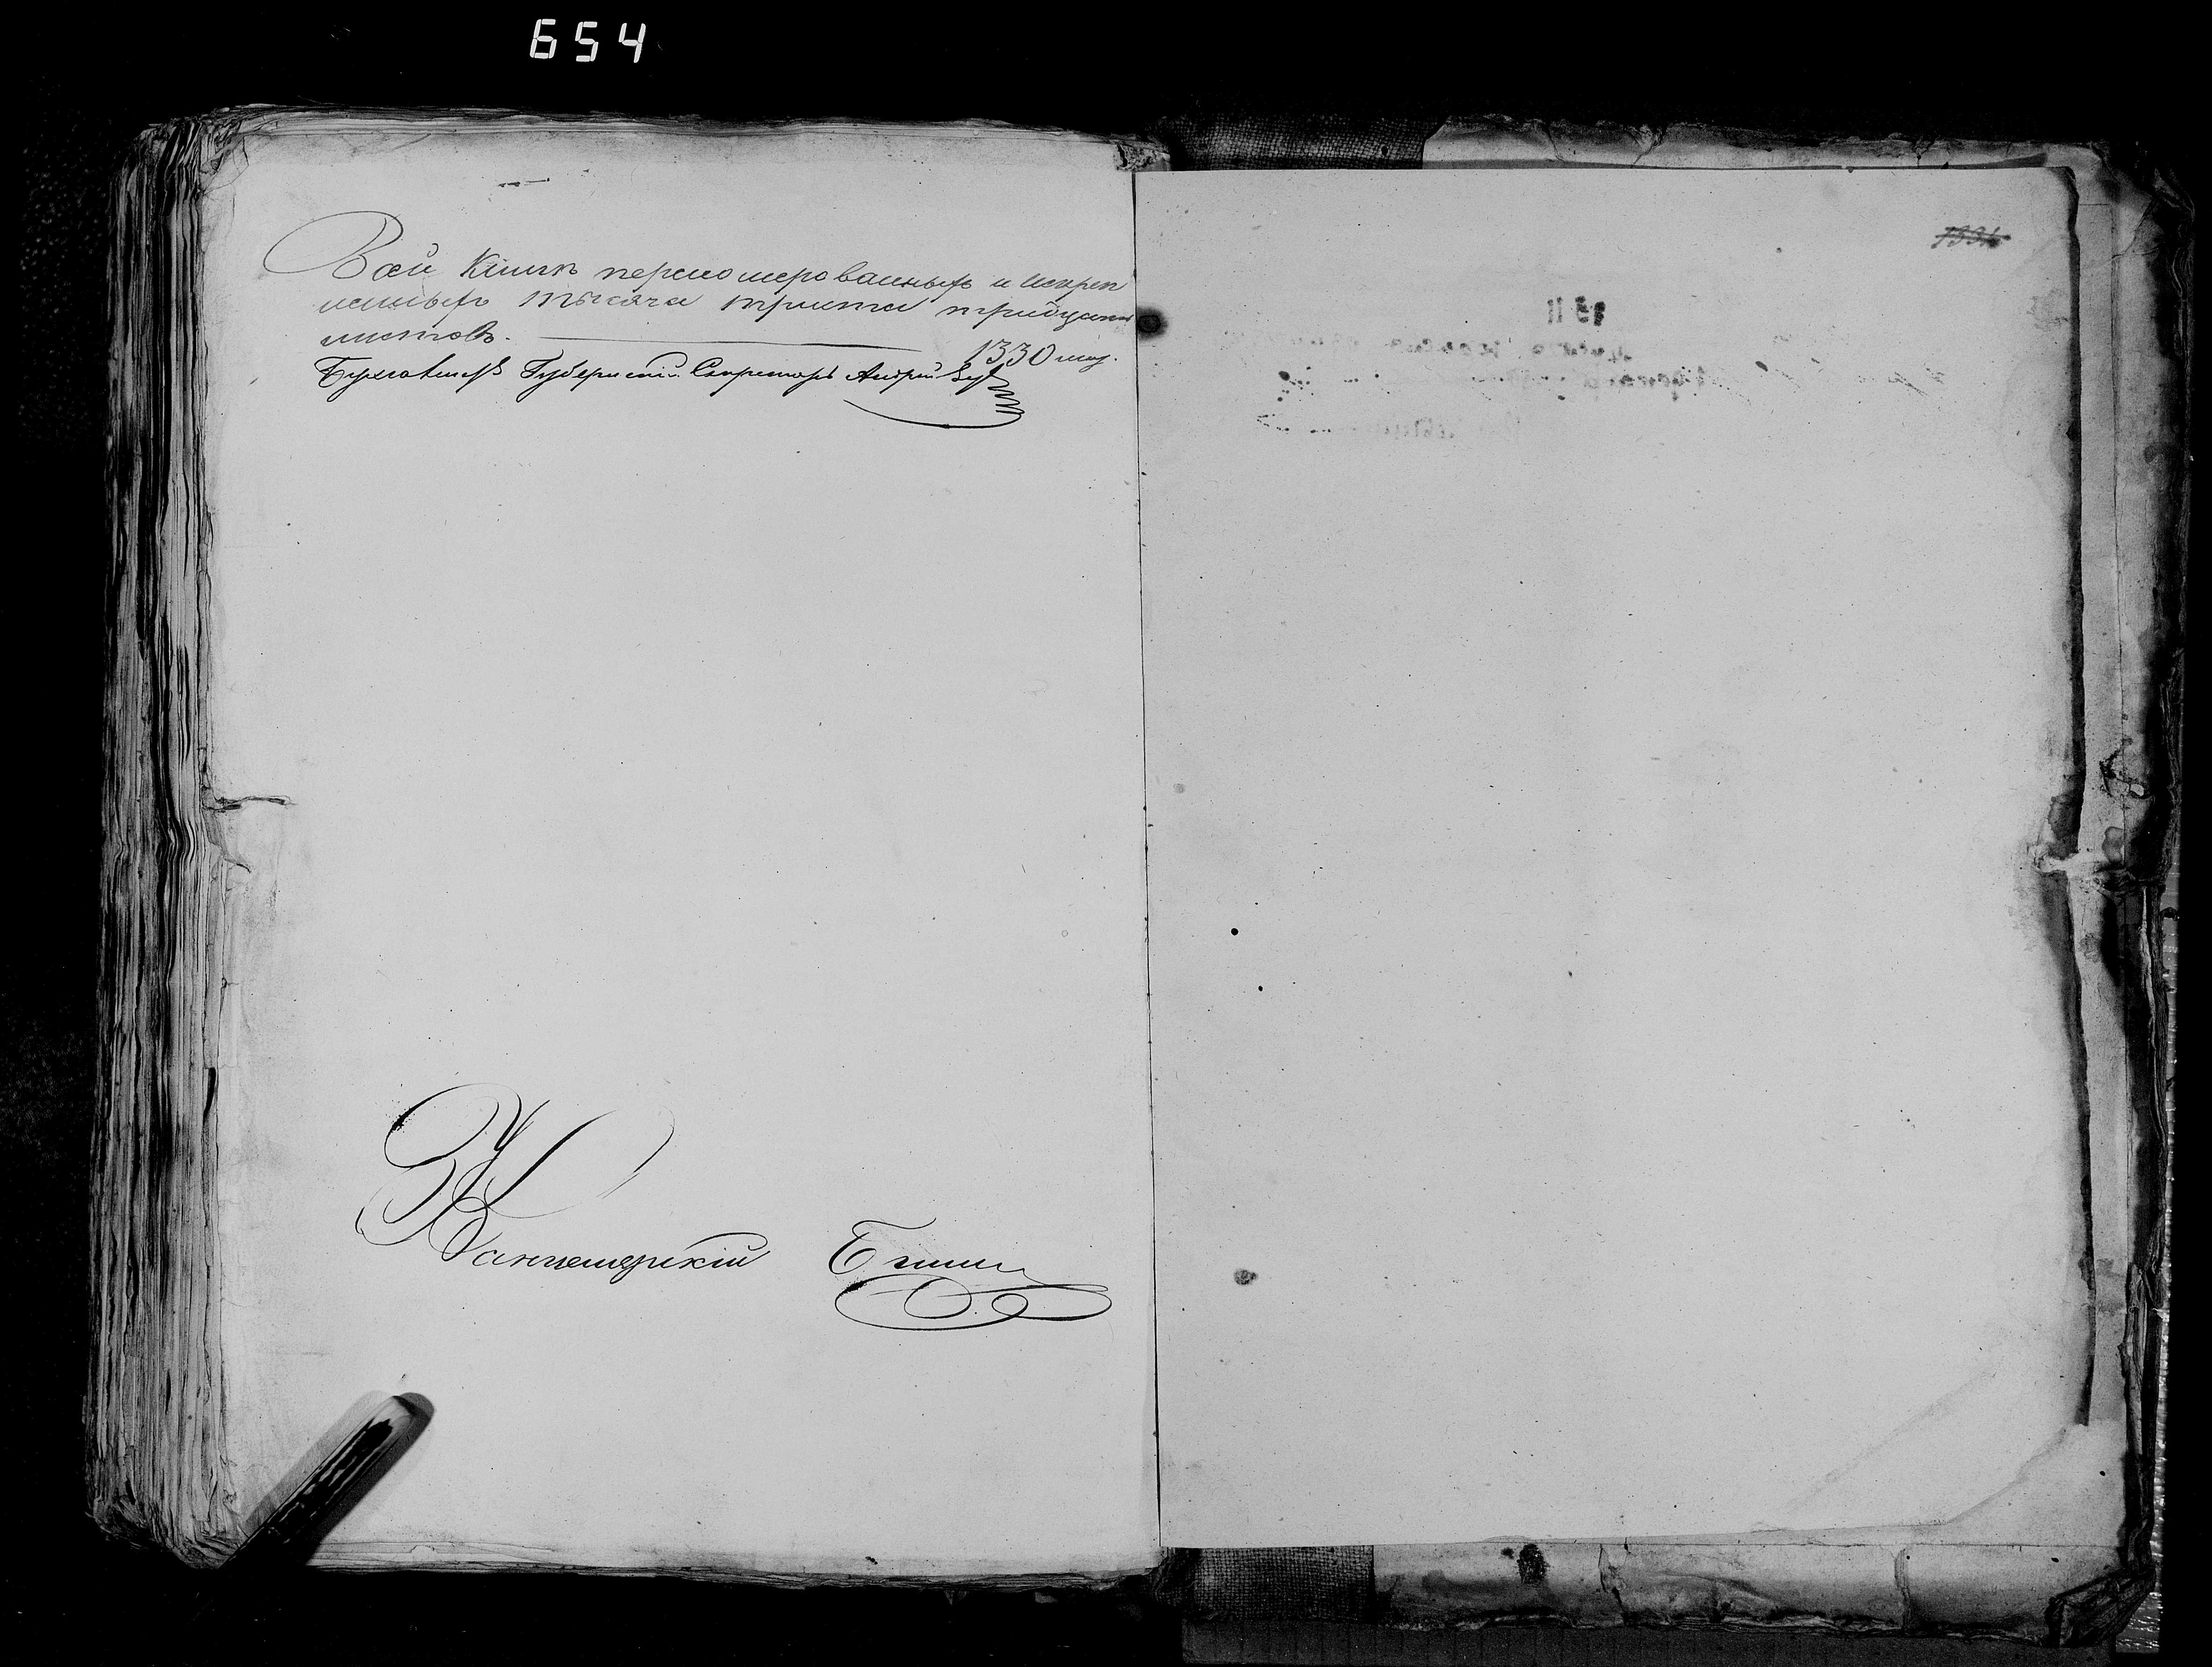 654
Всей Книги перномерованныхъ и искреп
ленныхъ тысяча триста тридцать
листовъ.
1330 лис.
Бухгалтеръ Губернскій Секретарь Андрей
Канцелярскій
1331